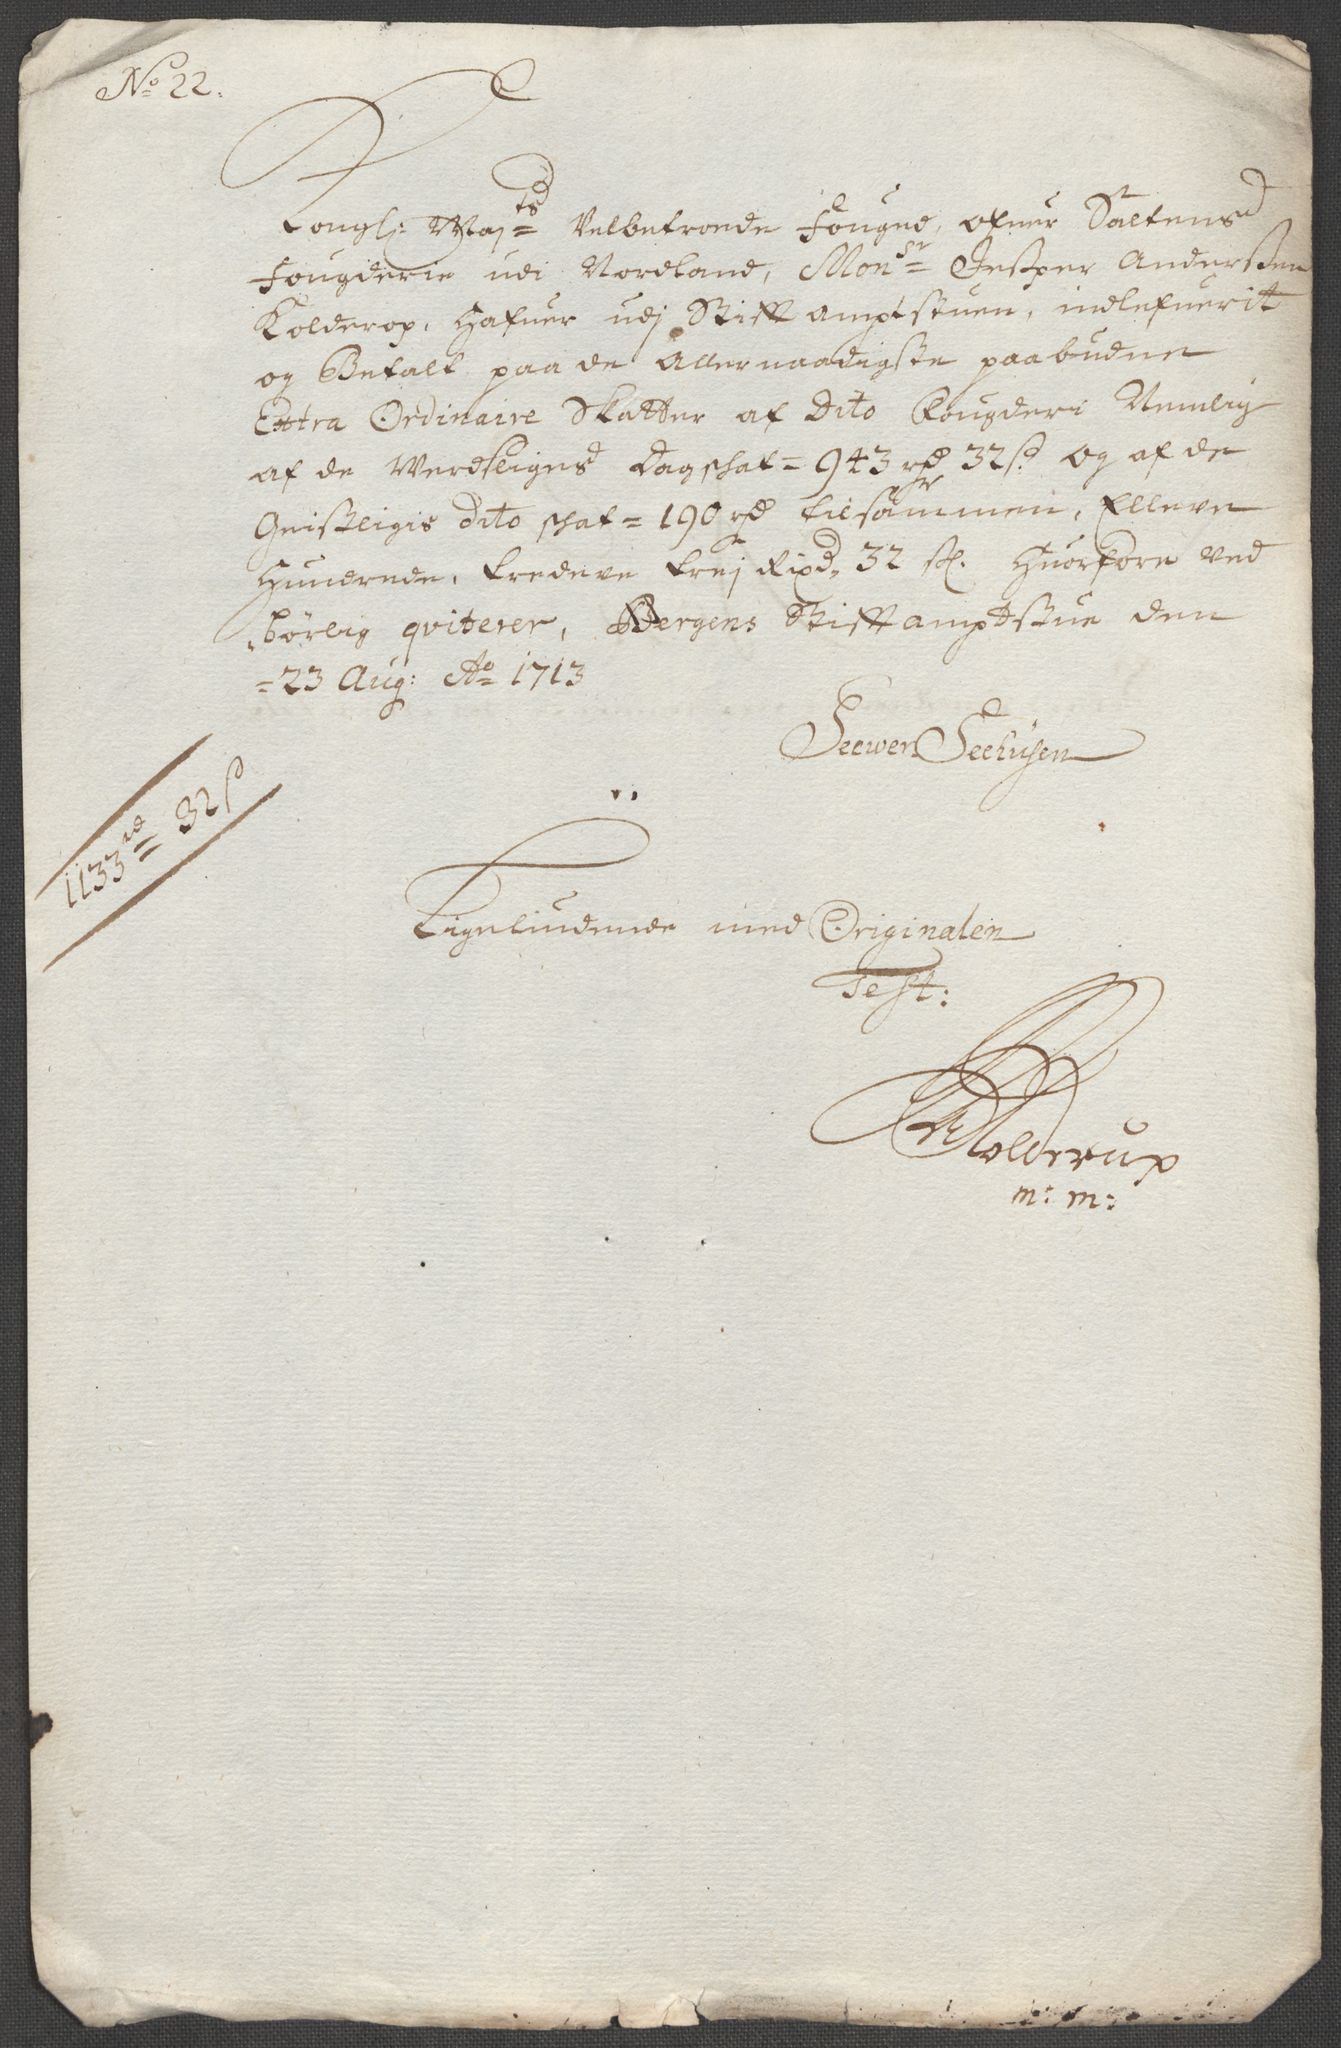 No 22.
Kongl: Maj:ts Velbetroede Fouged, ofuer Saltens
Fougderie udi Nordland, Monsr Jesper Anderssen
Kolderop, Hafuer udj Stiftamptstuen, indlefuerit
og Betalt paa de Allernaadigste paabudne
Extra Ordinaire Skatter af Dito Fougderi Nemlig
af de Werdsliges Dagschat = 943 rd 32 s. og af de
Geistligis dito schat = 190 rd tilsammen, Elleve
Hundrede, tredeve trej Rixd. 32 s. Huorfore ved
börlig qviterer, Bergens Stiftamptstue den
= 23 Aug: Ao 1713
Seewer Seehusen
1133 rd = 32 s
Ligeliudende med Originalen
Test:
Kolderup
m: m: